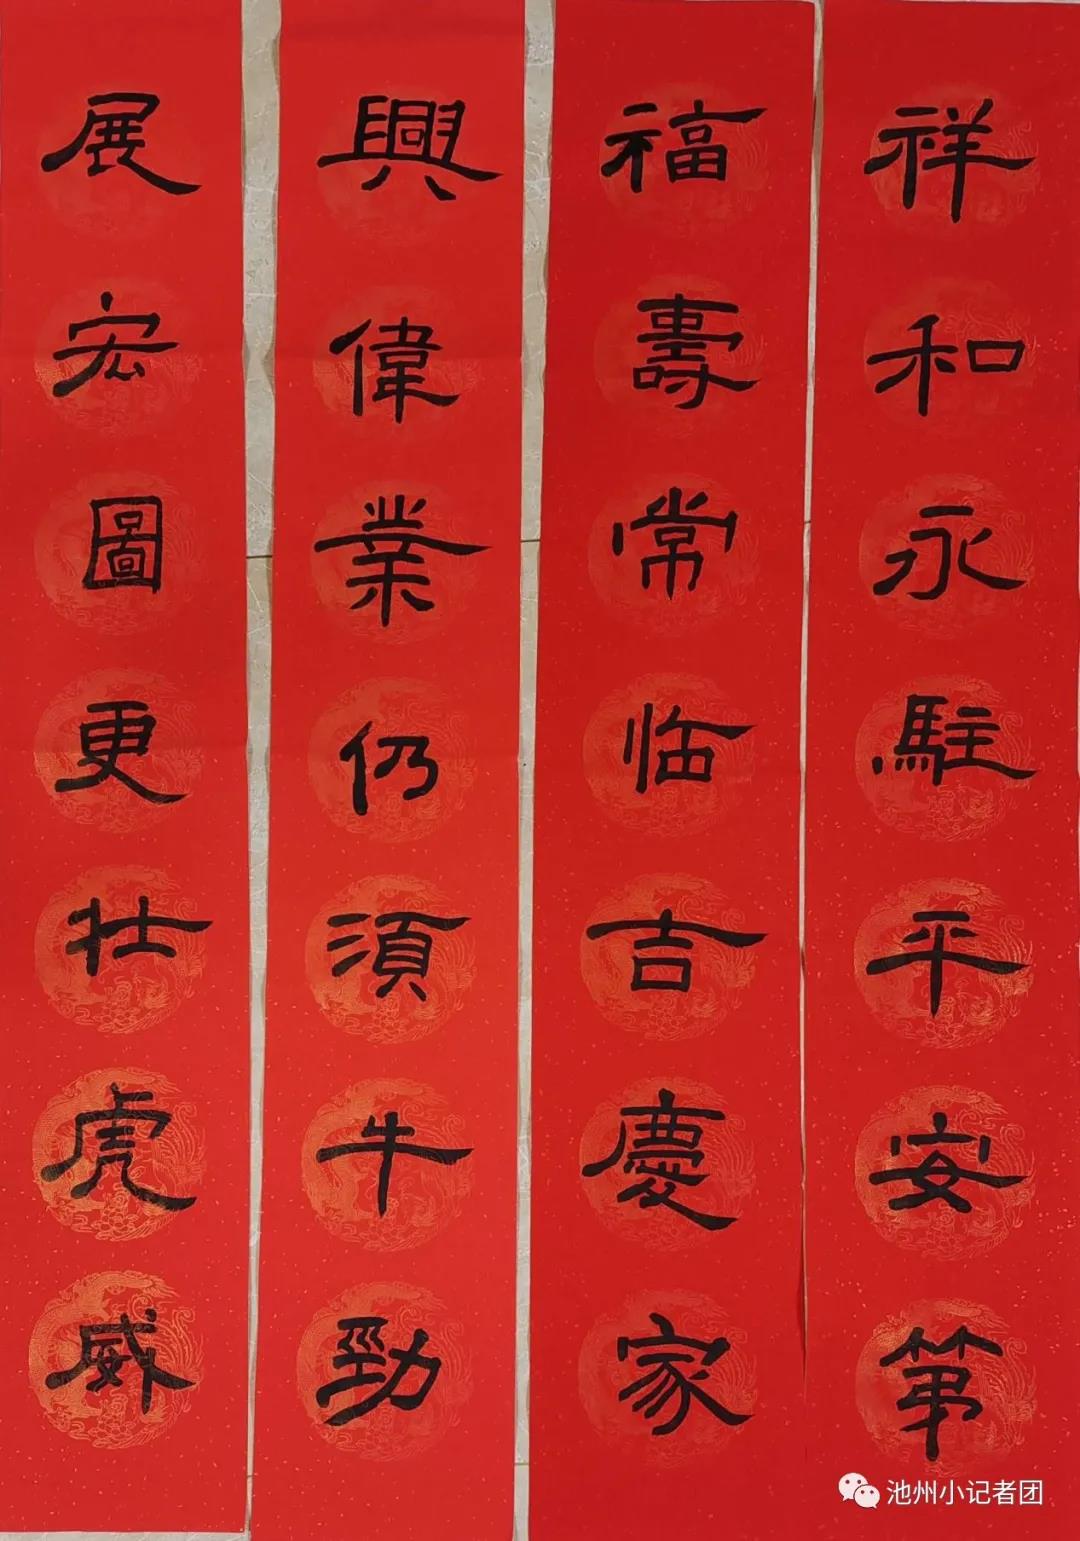 祥和永駐平安第
福壽常临吉慶家
興偉業仍須牛勁
展宏圖更壮虎威
池州小记者团